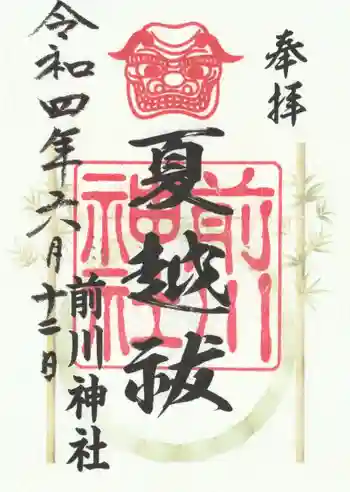 奉拝
夏越祓
前川神社
令和四年六月十二日
前川
神社